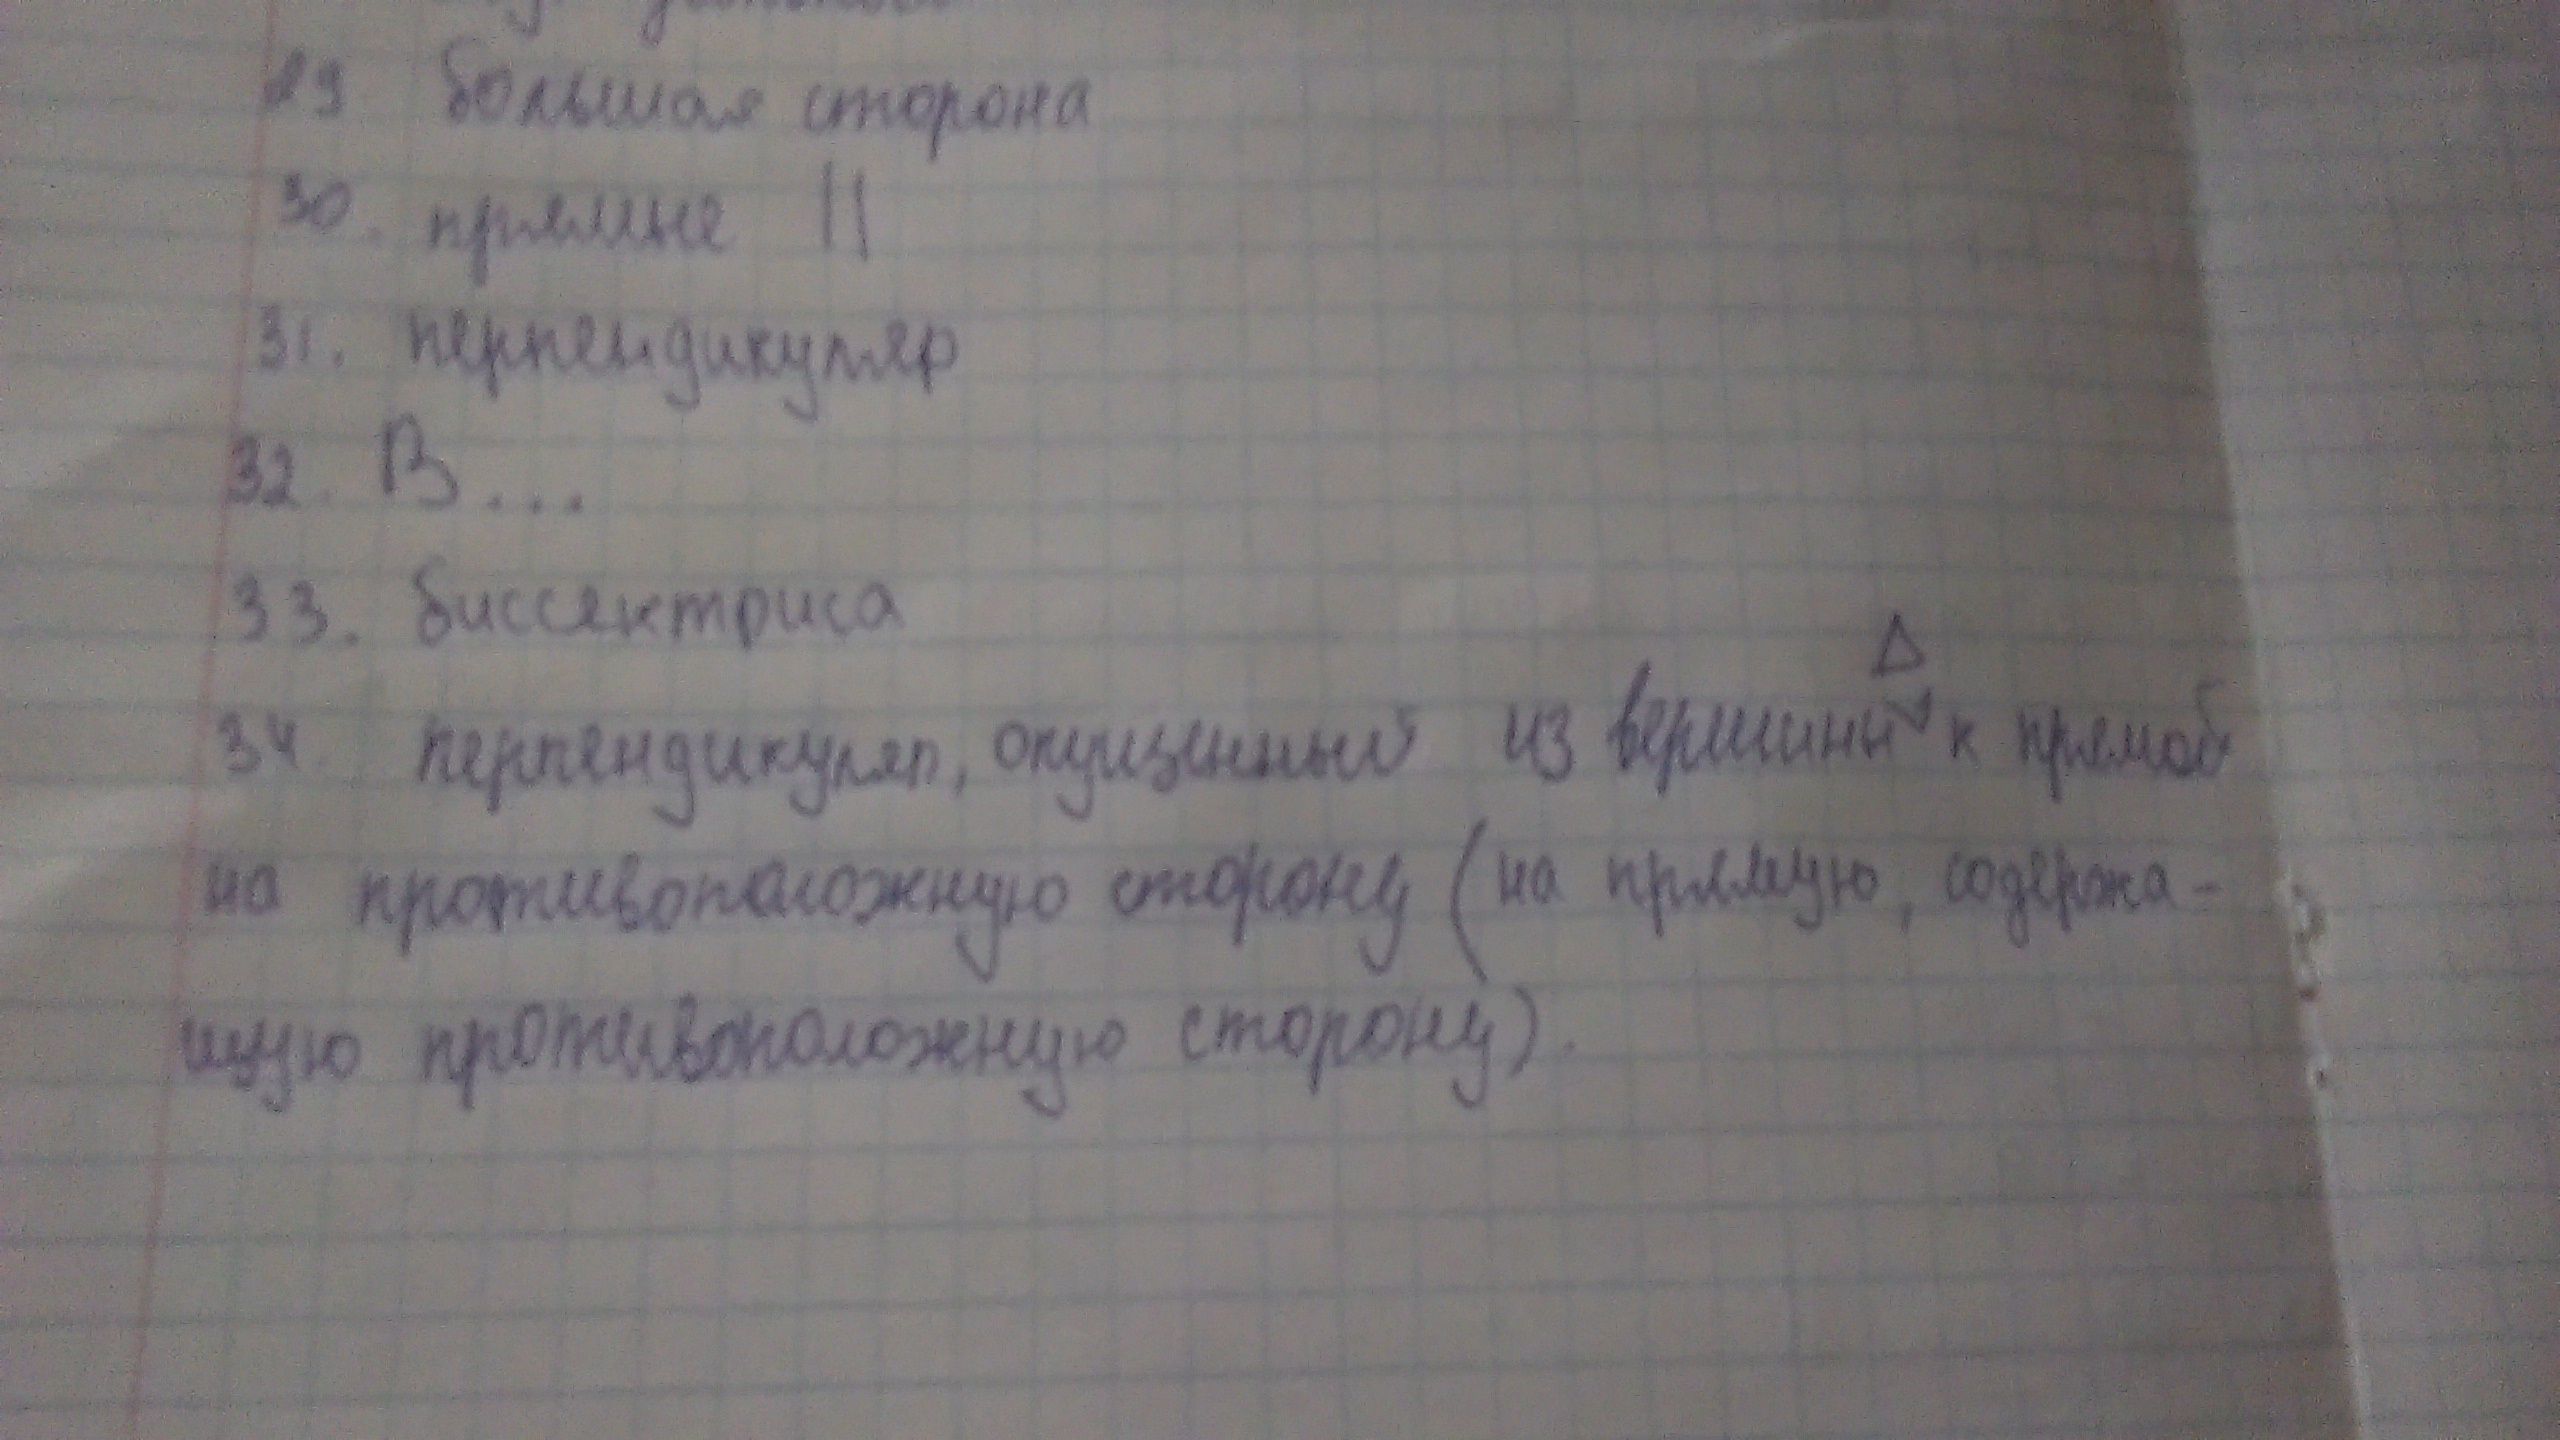 29 большая сторона
30. прямые ||
31. перпендикуляр
32. В...
33. биссектриса
Δ
34. перпендикуляр, опущенный из вершины ∨ к прямой
на противоположную сторону (на прямую, содержа-
щую противоположную сторону).